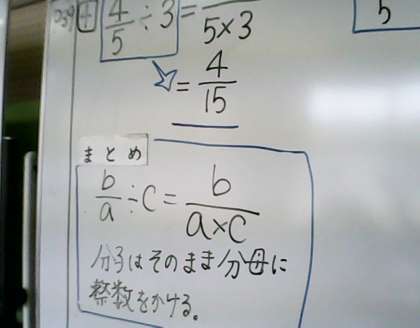 4/5 ÷ 3 = /5×3
5
= 4/15
まとめ
b/a ÷ C = b/a×C
分子はそのまま分母に
整数をかける。